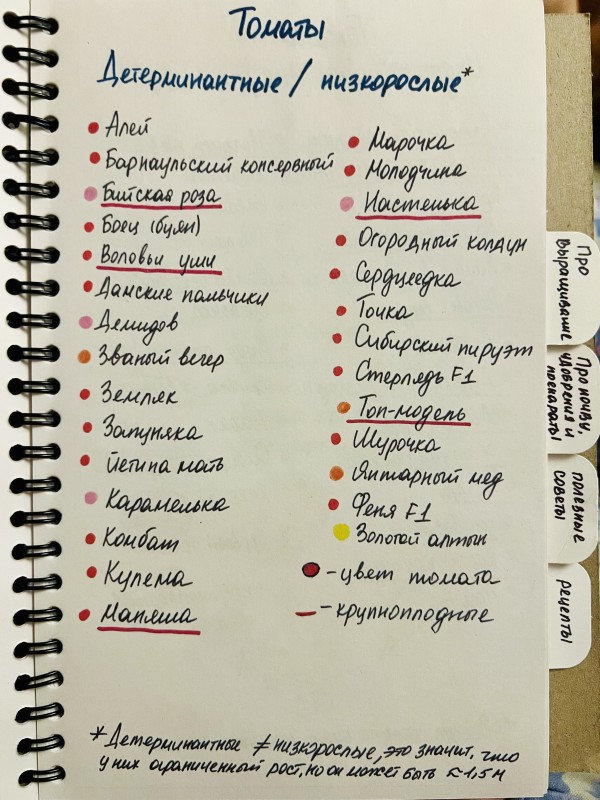 Томаты
Детерминантные / низкорослые*
Алей
Барнаульский консервный
Бийская роза
Боец (буян)
Воловьи уши
Дамские пальчики
Демидов
Званый вечер
Земляк
Запуняка
Йетипа мать
Карамелька
Комбат
Кулема
Маняша
Марочка
Молодчина
Настенька
Огородный колдун
Сердцеедка
Точка
Сибирский пируэт
Стерлядь F1
Топ-модель
Шурочка
Янтарный мед
Феня F1
Золотой алтын
- цвет томата
- крупноплодные
*Детерминантные ≠ низкорослые, это значит, что
у них ограниченный рост, но он может быть ≈1,5 м
Про
выращивание
Про почву,
удобрения и
препараты
полезные
советы
рецепты